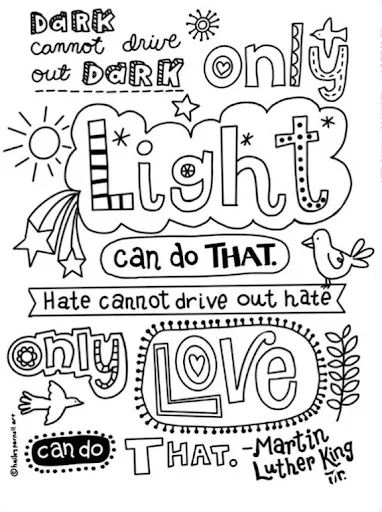 DARK
cannot drive
out DARK only
Light
can do THAT.
Hate cannot drive out hate
only LOVE
can do THAT. -Martin
Luther King
Jr.